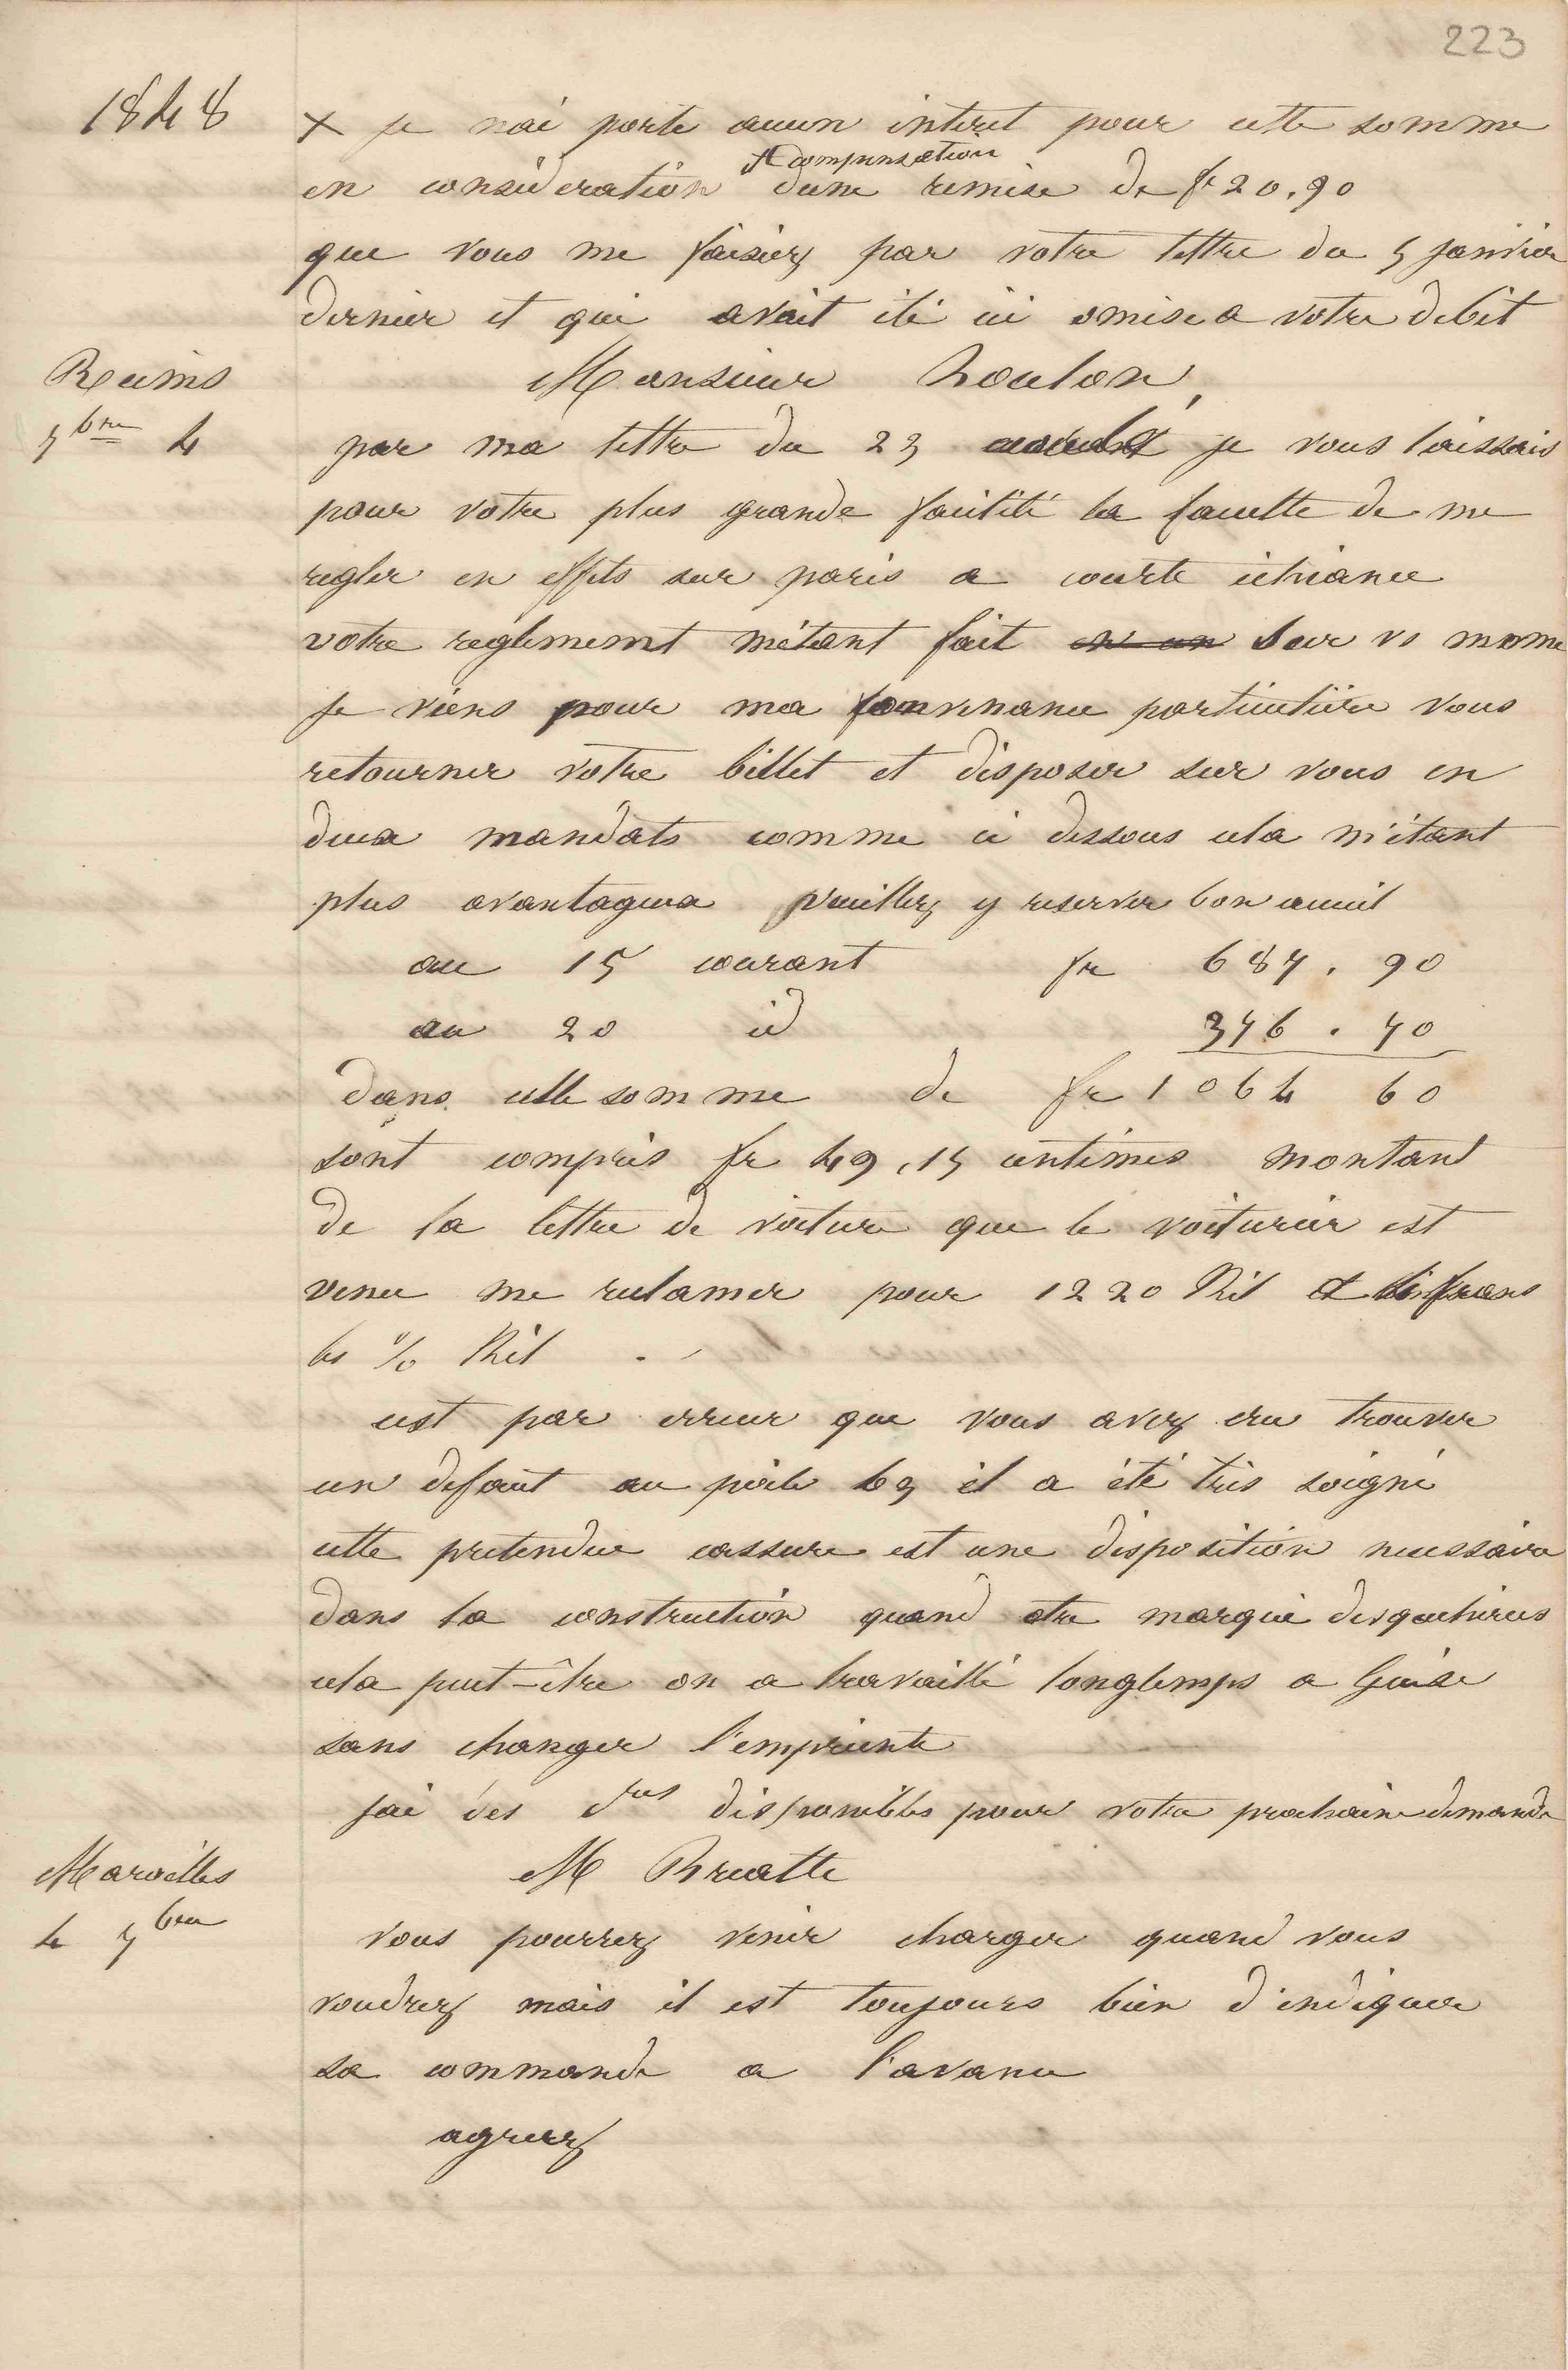 223
1848
× je nai porte aucun interet pour cette somme
et compensation
en consideration dune remise de fr 20.90
que vous me faisiez par votre lettre du 5 janvier
dernier et qui avait été ici omise a votre debit
Reims
7bre 4
Monsieur Houlon,
par ma lettre du 23 aout je vous laissais
pour votre plus grande facilité la faculte de me
regler en effets sur paris a courte échéance
votre reglement métant fait en un sur vs meme
Je viens pour ma convenance particulière vous
retourner votre billet et disposer sur vous en
deux mandats comme ci dessous cela m'étant
plus avantageux veuillez y reserver bon acceuil
au 15 courant fr 687.90
au 20 id 376.70
dans cette somme de fr 1064 60
sont compris fr 49,15 centimes montant
de la lettre de voiture que le voiturier est
venu me reclamer pour 1220 Kil a francs
les % Kil
cest par erreur que vous avez cru trouver
un defaut au poele 63 il a été tres soigné
cette pretendue cassure est une disposition necessaire
dans la construction quand otre marque desgacheries
cela peut-être on a travaillé longtemps a Guise
sans changer l'empriente
jai des drus disponibles pour votre prochaine demande
Maroilles
4 7bre
M Bruatte
vous pourrez venir charger quand vous
voudrez mais il est toujours bien d'indiquer
sa commande a l'avance
agreez